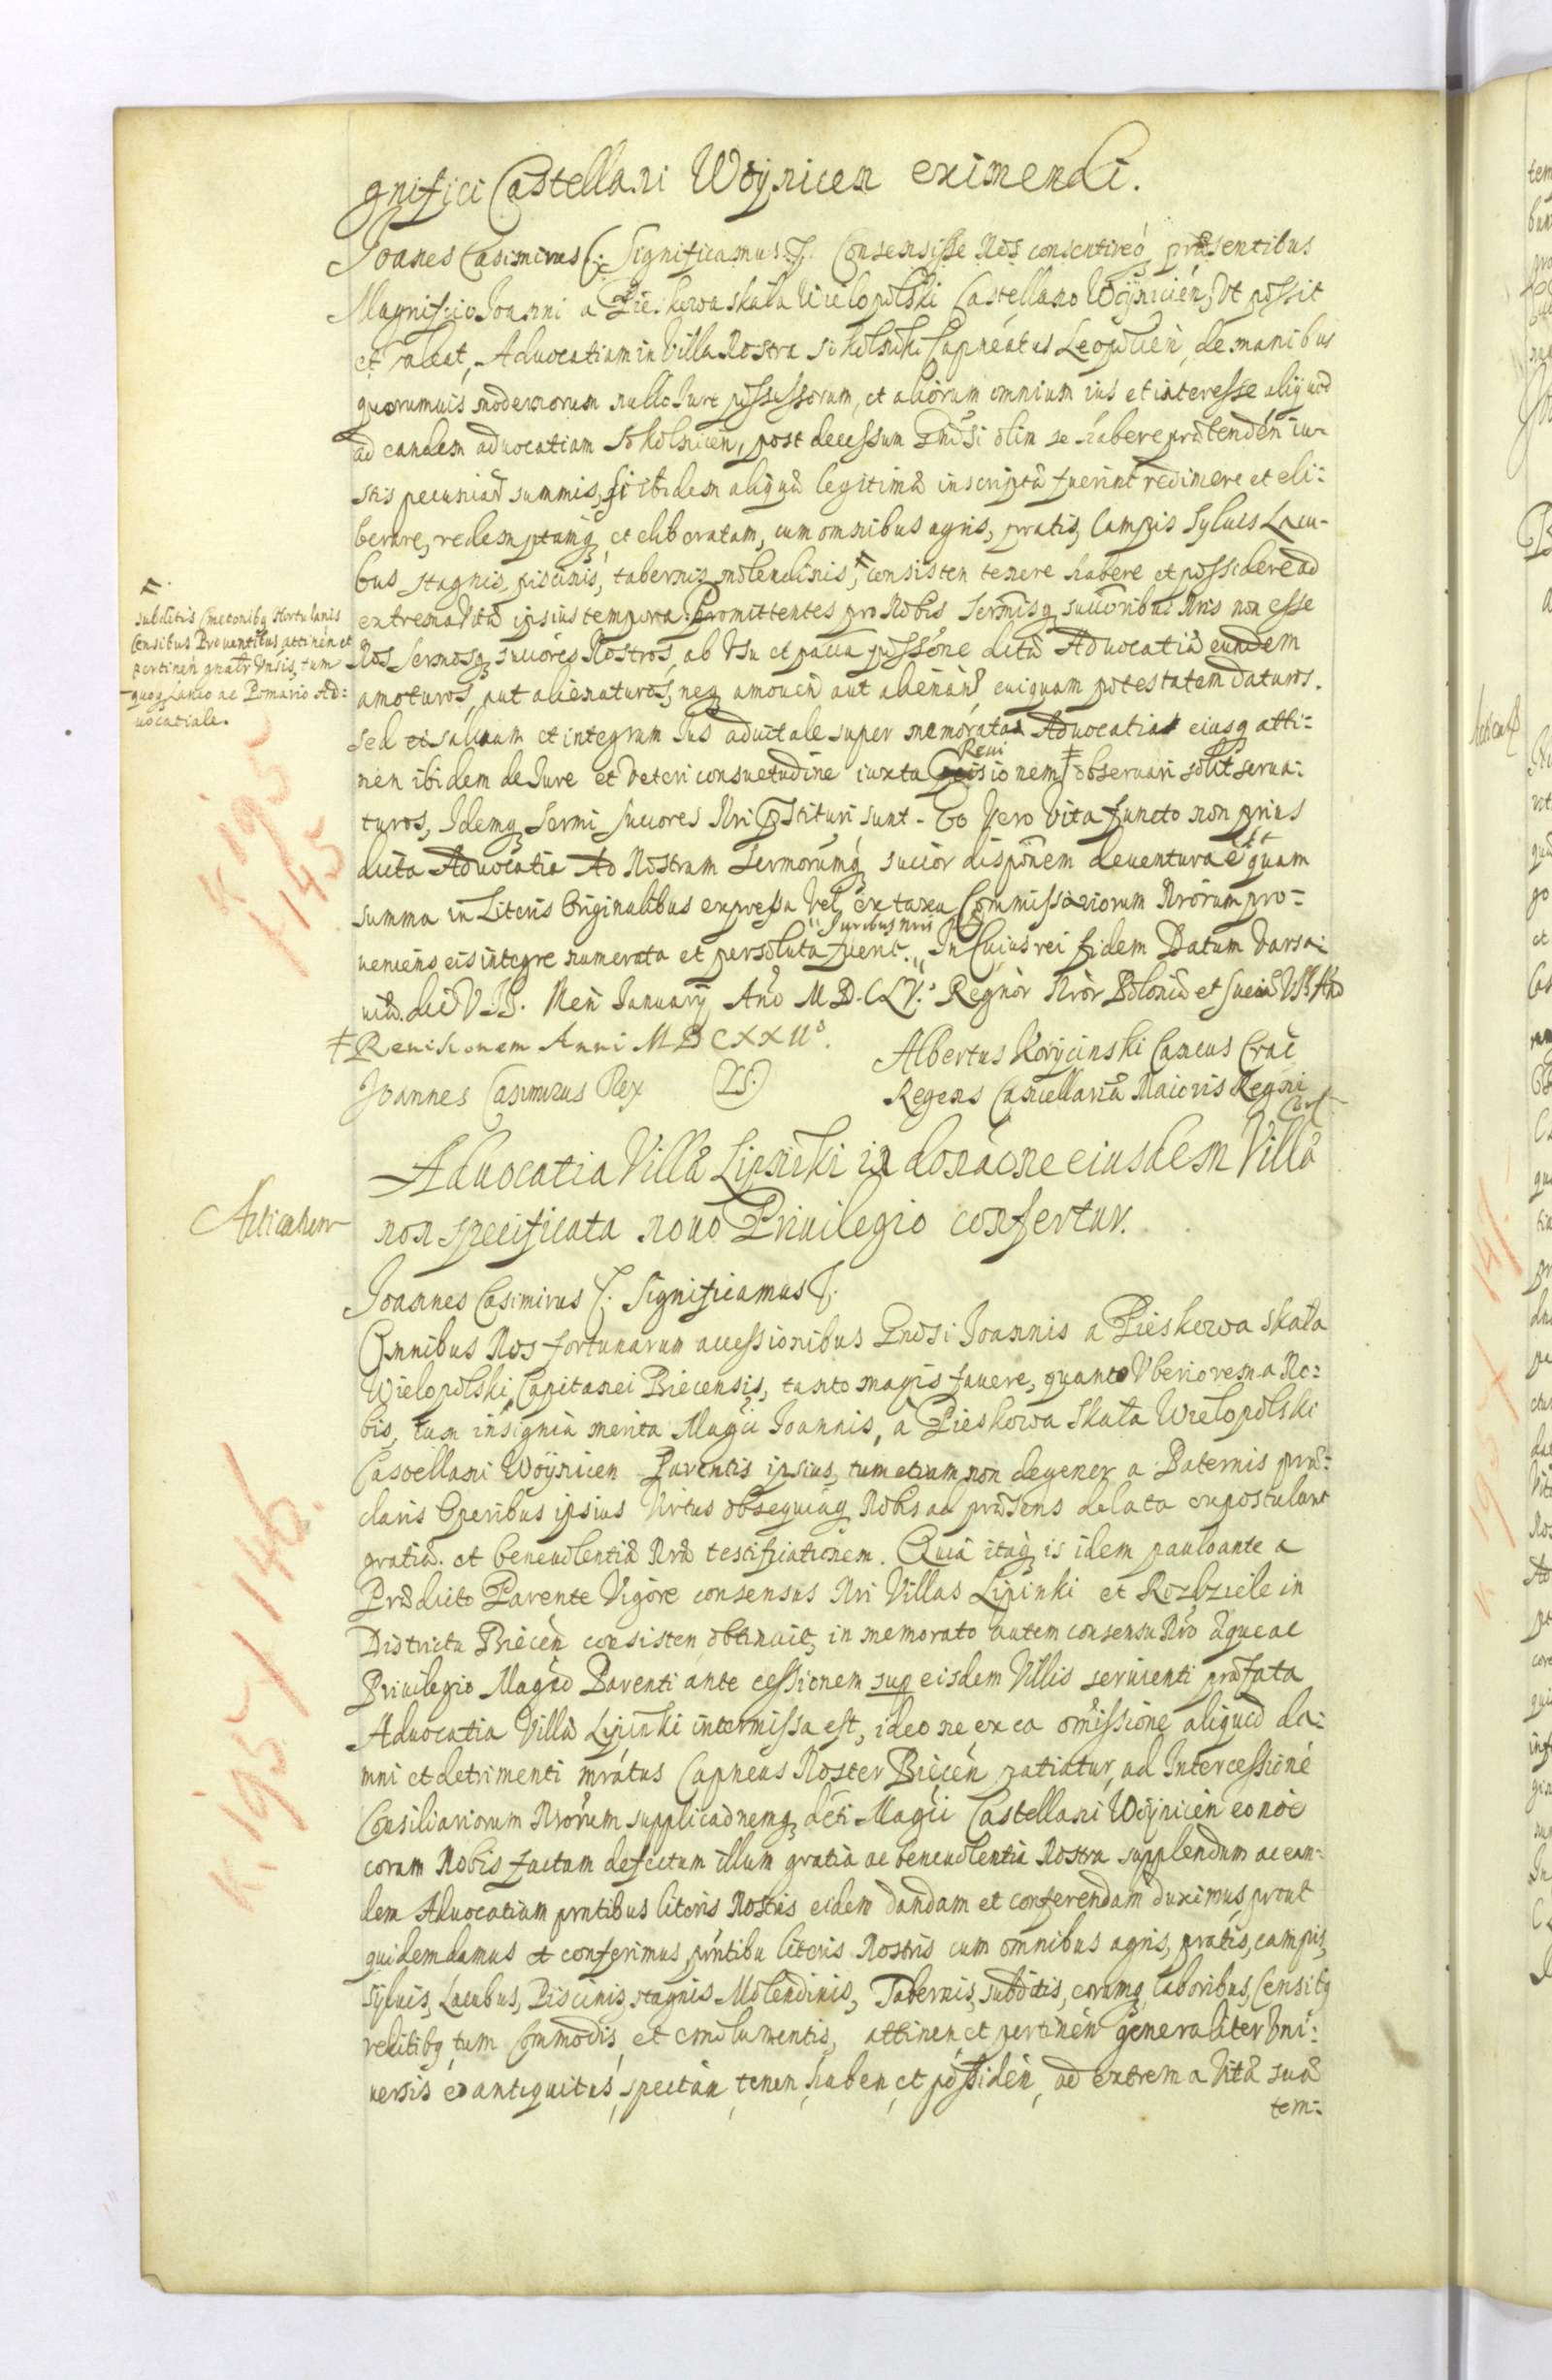 gnifici Castellani Woÿnicen eximendi.
Joanes Casimirus &. Significamus &. Consensisse Nos consentireq præsentibus
Magnifico Joanni a Pieskowa skała Wielopolski Castellano Woÿnicien, Vt possit
et valeat, Aduocatiam in Villa Nostra Sokolniki Capneatus Leopolien, de manibus
quorumuis modernorum nullo Jure possessorum, et aliorum omnium ius et interesse aliquod
ad eandem aduocatiam Sokolnicen, post decessum Gnosi olim se habere prætenden iu-
stis pecuniar summis, si ibidem aliquæ legitimæ inscriptæ fuerint redimere et eli:
berare, redemptamq et eliberatam, cum omnibus agris, pratis, Campis Syluis Lacu-
bus stagnis, piscinis, tabernis molendinis, consisten tenere habere et possidere ad
extrema vitæ ipsius tempora. Promittentes pro Nobis Sermisq succoribus Nris non esse
Nos Sermosq succores Nostros, ab Vsu et pacca possone dictæ Aduocatiæ eundem
amoturos, aut alienaturos, neq amouen aut alienan cuiquam potestatem daturos.
sed salauum et integrum Jus aductale super memorata Aduocatia eiusq atti:
nen ibidem de Jure et veteri consuetudine iuxta Reuisionem ‡ obseruari solit serua:
turos, Idemq Sermi Succores Nri pstituri sunt. Eo vero vita functo non prius
dicta Aduocatia Ad Nostram Sermorumq succor disponem deuentura e quam
summa in Literis Originalibus expressa vel ex taxa Commissariorum Nrorum pro-
ueniens eis integre numerata et persoluta fuerit. " Juribus nris " In Cuius rei fidem Datum Varsa:
uiæ. die VII. Men January Ano MDCLV. Regnor Nror Poloniæ et Sueciæ
‡ Reuisionem Anni MDCXXIIo.
Joannes Casimirus Rex LS.
Albertus Korycinski Cancus Crac
Regens Cancellariæ Maioris Regni
#.
subditis Cmetonibq Hortulanis
Censibus Prouentibus, attinen et
pertinen gnalr Vnsis, tum
quoq Laneo ac Pomario Ad:
uocatiale.
K 195
f 145
Aduocatia Villæ Lipinki in donaone eiusdem Villæ
non specificata nouo Priuilegio confertur.
Joannes Casimirus &. Significamus &.
Omnibus Nos fortunarum accessionibus Gnosi Joannis a Pieskowa skała
Wielopolski, Capitanei Biecensis, tanto magis fauere, quanto Vberiorem a No:
bis, tum insignia merita Magci Joannis, à Pieskowa Skała Wielopolski
Castellani Woÿnicen Parentis ipsius, tum etiam non degener a Paternis præ:
claris Operibus ipsius Virtus obsequiaq Nobis ad præsens delata expostulant
gratiæ. et beneuolentiæ Nræ testificationem. Quia itaq is idem pauloante a
Prædicto Parente Vigore consensus Nri Villas Lipinki et Rozbziele in
Districtu Biecen consisten, obtinuit, in memorato autem consensu Nro æque ac
Priuilegio Magco Parenti ante cessionem sup eisdem Villis seruienti præfata
Aduocatia Villæ Lipinki intermissa est, ideo ne ex ea omissione aliquod da:
mni et detrimenti mratus Capneus Noster Biecen patiatur, ad Intercessione
Consiliariorum Nrorum supplicaonemq dcti Magci Castellani Woÿnicen eo noie
coram Nobis factam defectum illum gratia ac beneuolentia Nostra supplendum ac ean-
dem Aduocatiam prntibus literis Nostris eidem dandam et conferendam duximus, prout
quidem damus et conferimus, prntibu literis Nostris cum omnibus agris, pratis, campis,
syluis, Lacubus, Piscinis, stagnis Molendinis, Tabernis, subditis, eorumq laboribus, Censibq
reditibq, tum Commodis, et emolumentis, attinen, et pertinen generaliter Vni:
uersis ex antiquitus, spectan, tenen, haben, et possiden, ad extrema Vitæ suæ
tem:
K 195 f 146.